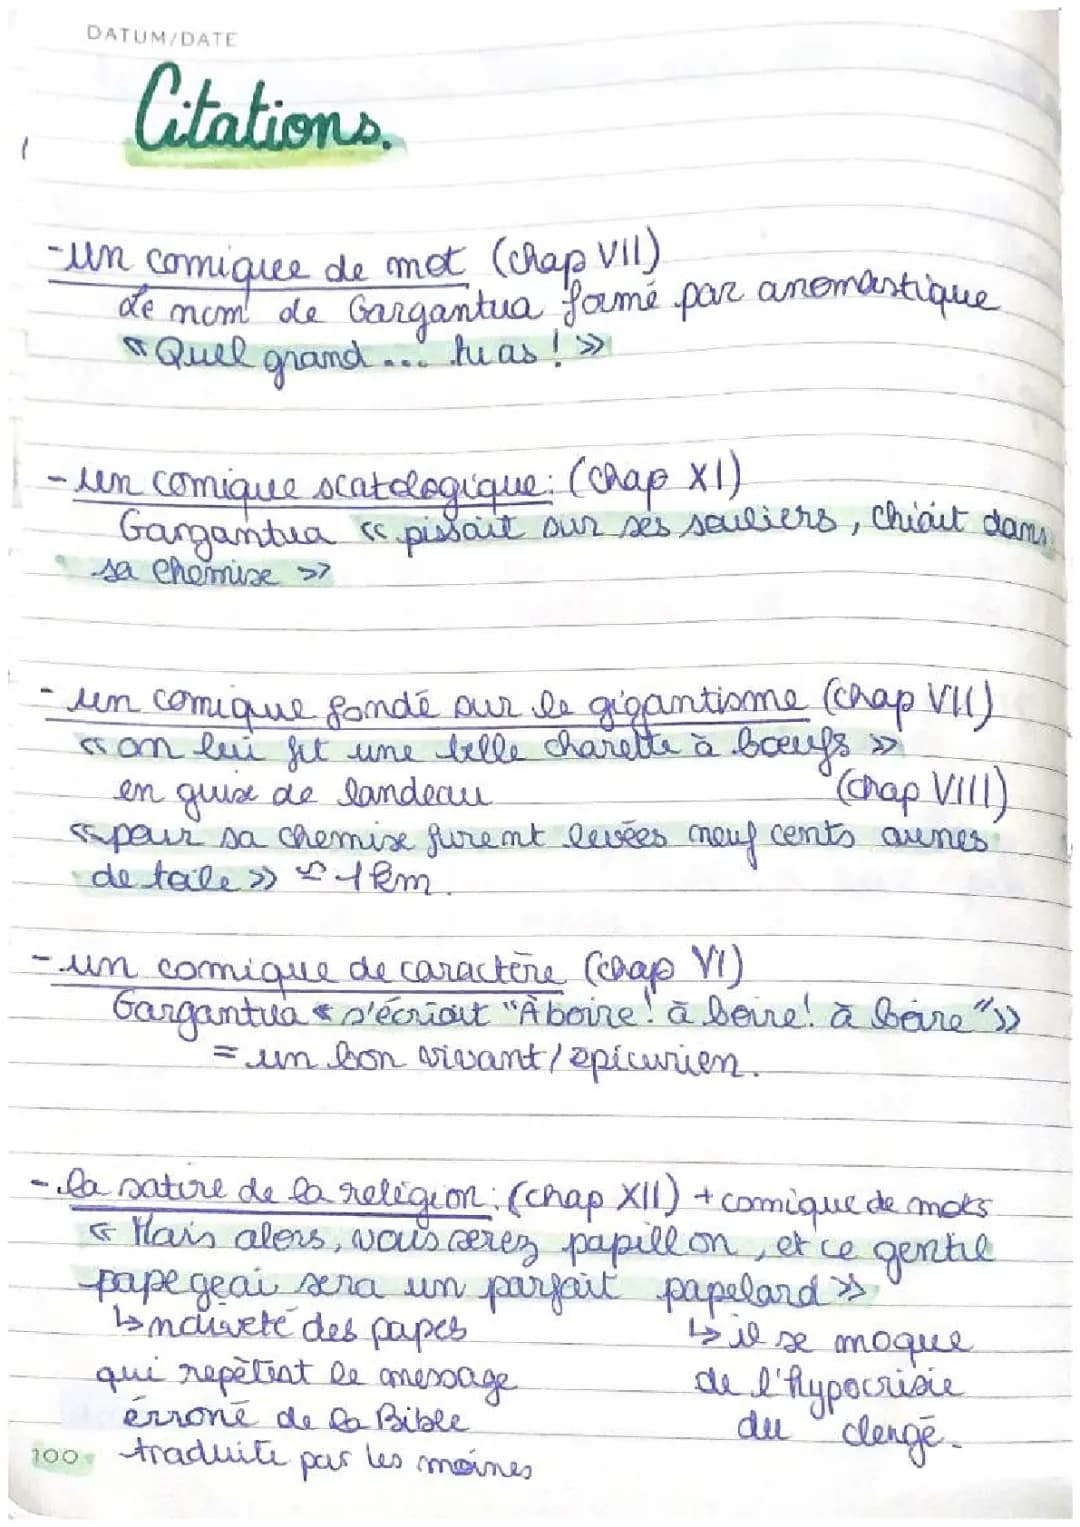 DATUM/DATE
Citations.
- un comique de mot (chap VII)
Le nom de Gargantua formé par anomastique
« Quel grand ... tu as ! »
- un comique scatologique : (chap XI)
Gargantua « pissait sur ses souliers, chiait dans
sa chemise »
- un comique fondé sur le gigantisme (chap VII)
« on lui fit une belle charette à bœufs »
en guise de landeau (chap VIII)
« pour sa chemise furent levées neuf cents aunes
de toile » 1km.
- un comique de caractère (chap VI)
Gargantua « s'écriait "À boire! à boire! à boire" »
= un bon vivant/épicurien.
- la satire de la religion : (chap XII) + comique de mots
« Mais alors, vous serez papillon, et ce gentil
papegeai sera un parfait papelard »
↳ naïveté des papes ↳ il se moque
qui repètent le message de l'hypocrisie
érroné de la Bible du clergé.
100 traduite par les moines